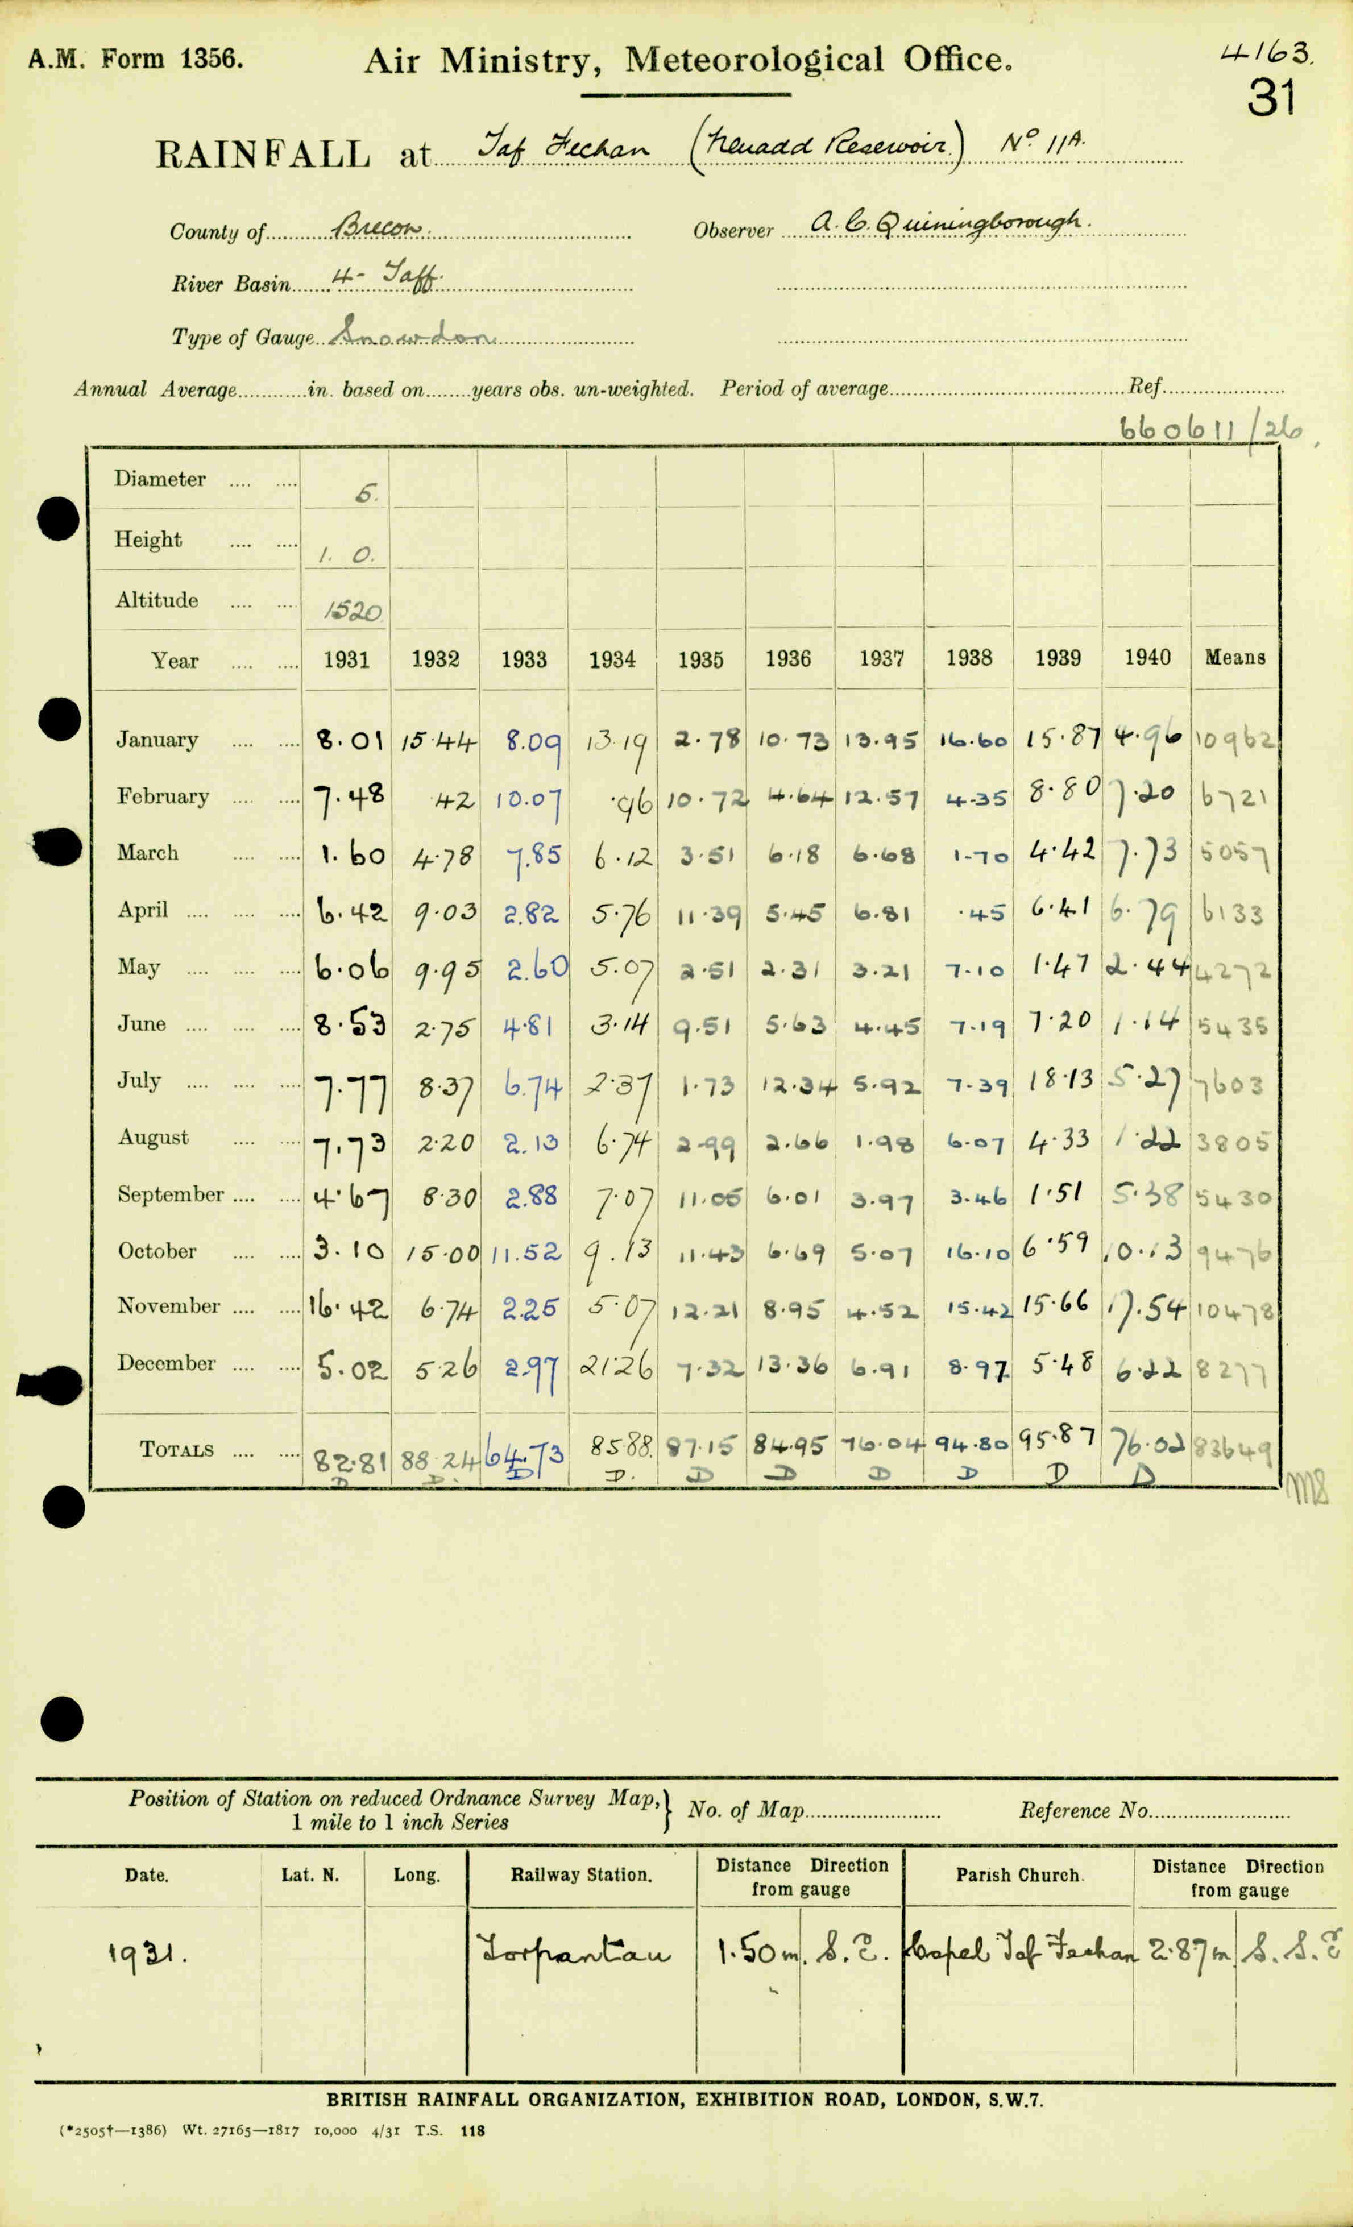 A.M. Form 1356. Air Ministry, Meteorological Office. 4163.
31
RAINFALL at Taf Fechan (Neuadd Reservoir.) No 11A.
County of Brecon. Observer A. C. Quiningborough.
River Basin 4- Taff.
Type of Gauge Snowdon
Annual Average in. based on years obs. un-weighted. Period of average Ref.
660611/26.
Diameter 5.
Height 1. 0.
Altitude 1520
Year 1931 1932 1933 1934 1935 1936 1937 1938 1939 1940 Means
January 8.01 15.44 8.09 13.19 2.78 10.73 13.95 16.60 15.87 4.96 10962
February 7.48 42 10.07 .96 10.72 4.64 12.57 4.35 8.80 7.20 6721
March 1.60 4.78 7.85 6.12 3.51 6.18 6.68 1.70 4.42 7.73 5057
April 6.42 9.03 2.82 5.76 11.39 5.45 6.81 .45 6.41 6.79 6133
May 6.06 9.95 2.60 5.07 2.51 2.31 3.21 7.10 1.47 2.44 4272
June 8.53 2.75 4.81 3.14 9.51 5.63 4.45 7.19 7.20 1.14 5435
July 7.77 8.37 6.74 2.37 1.73 12.34 5.92 7.39 18.13 5.27 7603
August 7.73 2.20 2.13 6.74 2.99 2.66 1.98 6.07 4.33 1.22 3805
September 4.67 8.30 2.88 7.07 11.05 6.01 3.97 3.46 1.51 5.38 5430
October 3.10 15.00 11.52 9.13 11.43 6.69 5.07 16.10 6.59 10.13 9476
November 16.42 6.74 2.25 5.07 12.21 8.95 4.52 15.42 15.66 17.54 10478
December 5.02 5.26 2.97 21.26 7.32 13.36 6.91 8.97 5.48 6.22 8277
TOTALS 82.81 88.24 64.73 85.88. 87.15 84.95 76.04 94.80 95.87 76.02 83649
D D. D D. D D D D D D
Position of Station on reduced Ordnance Survey Map, } No. of Map Reference No.
1 mile to 1 inch Series
Date. Lat. N. Long. Railway Station. Distance Direction from gauge Parish Church. Distance Direction from gauge
1931. Torpantau 1.50m. S.E. Capel Taf Fechan 2.87m S.S.E
BRITISH RAINFALL ORGANIZATION, EXHIBITION ROAD, LONDON, S.W.7.
(*2505†—1386) Wt. 27165—1817 10,000 4/31 T.S. 118